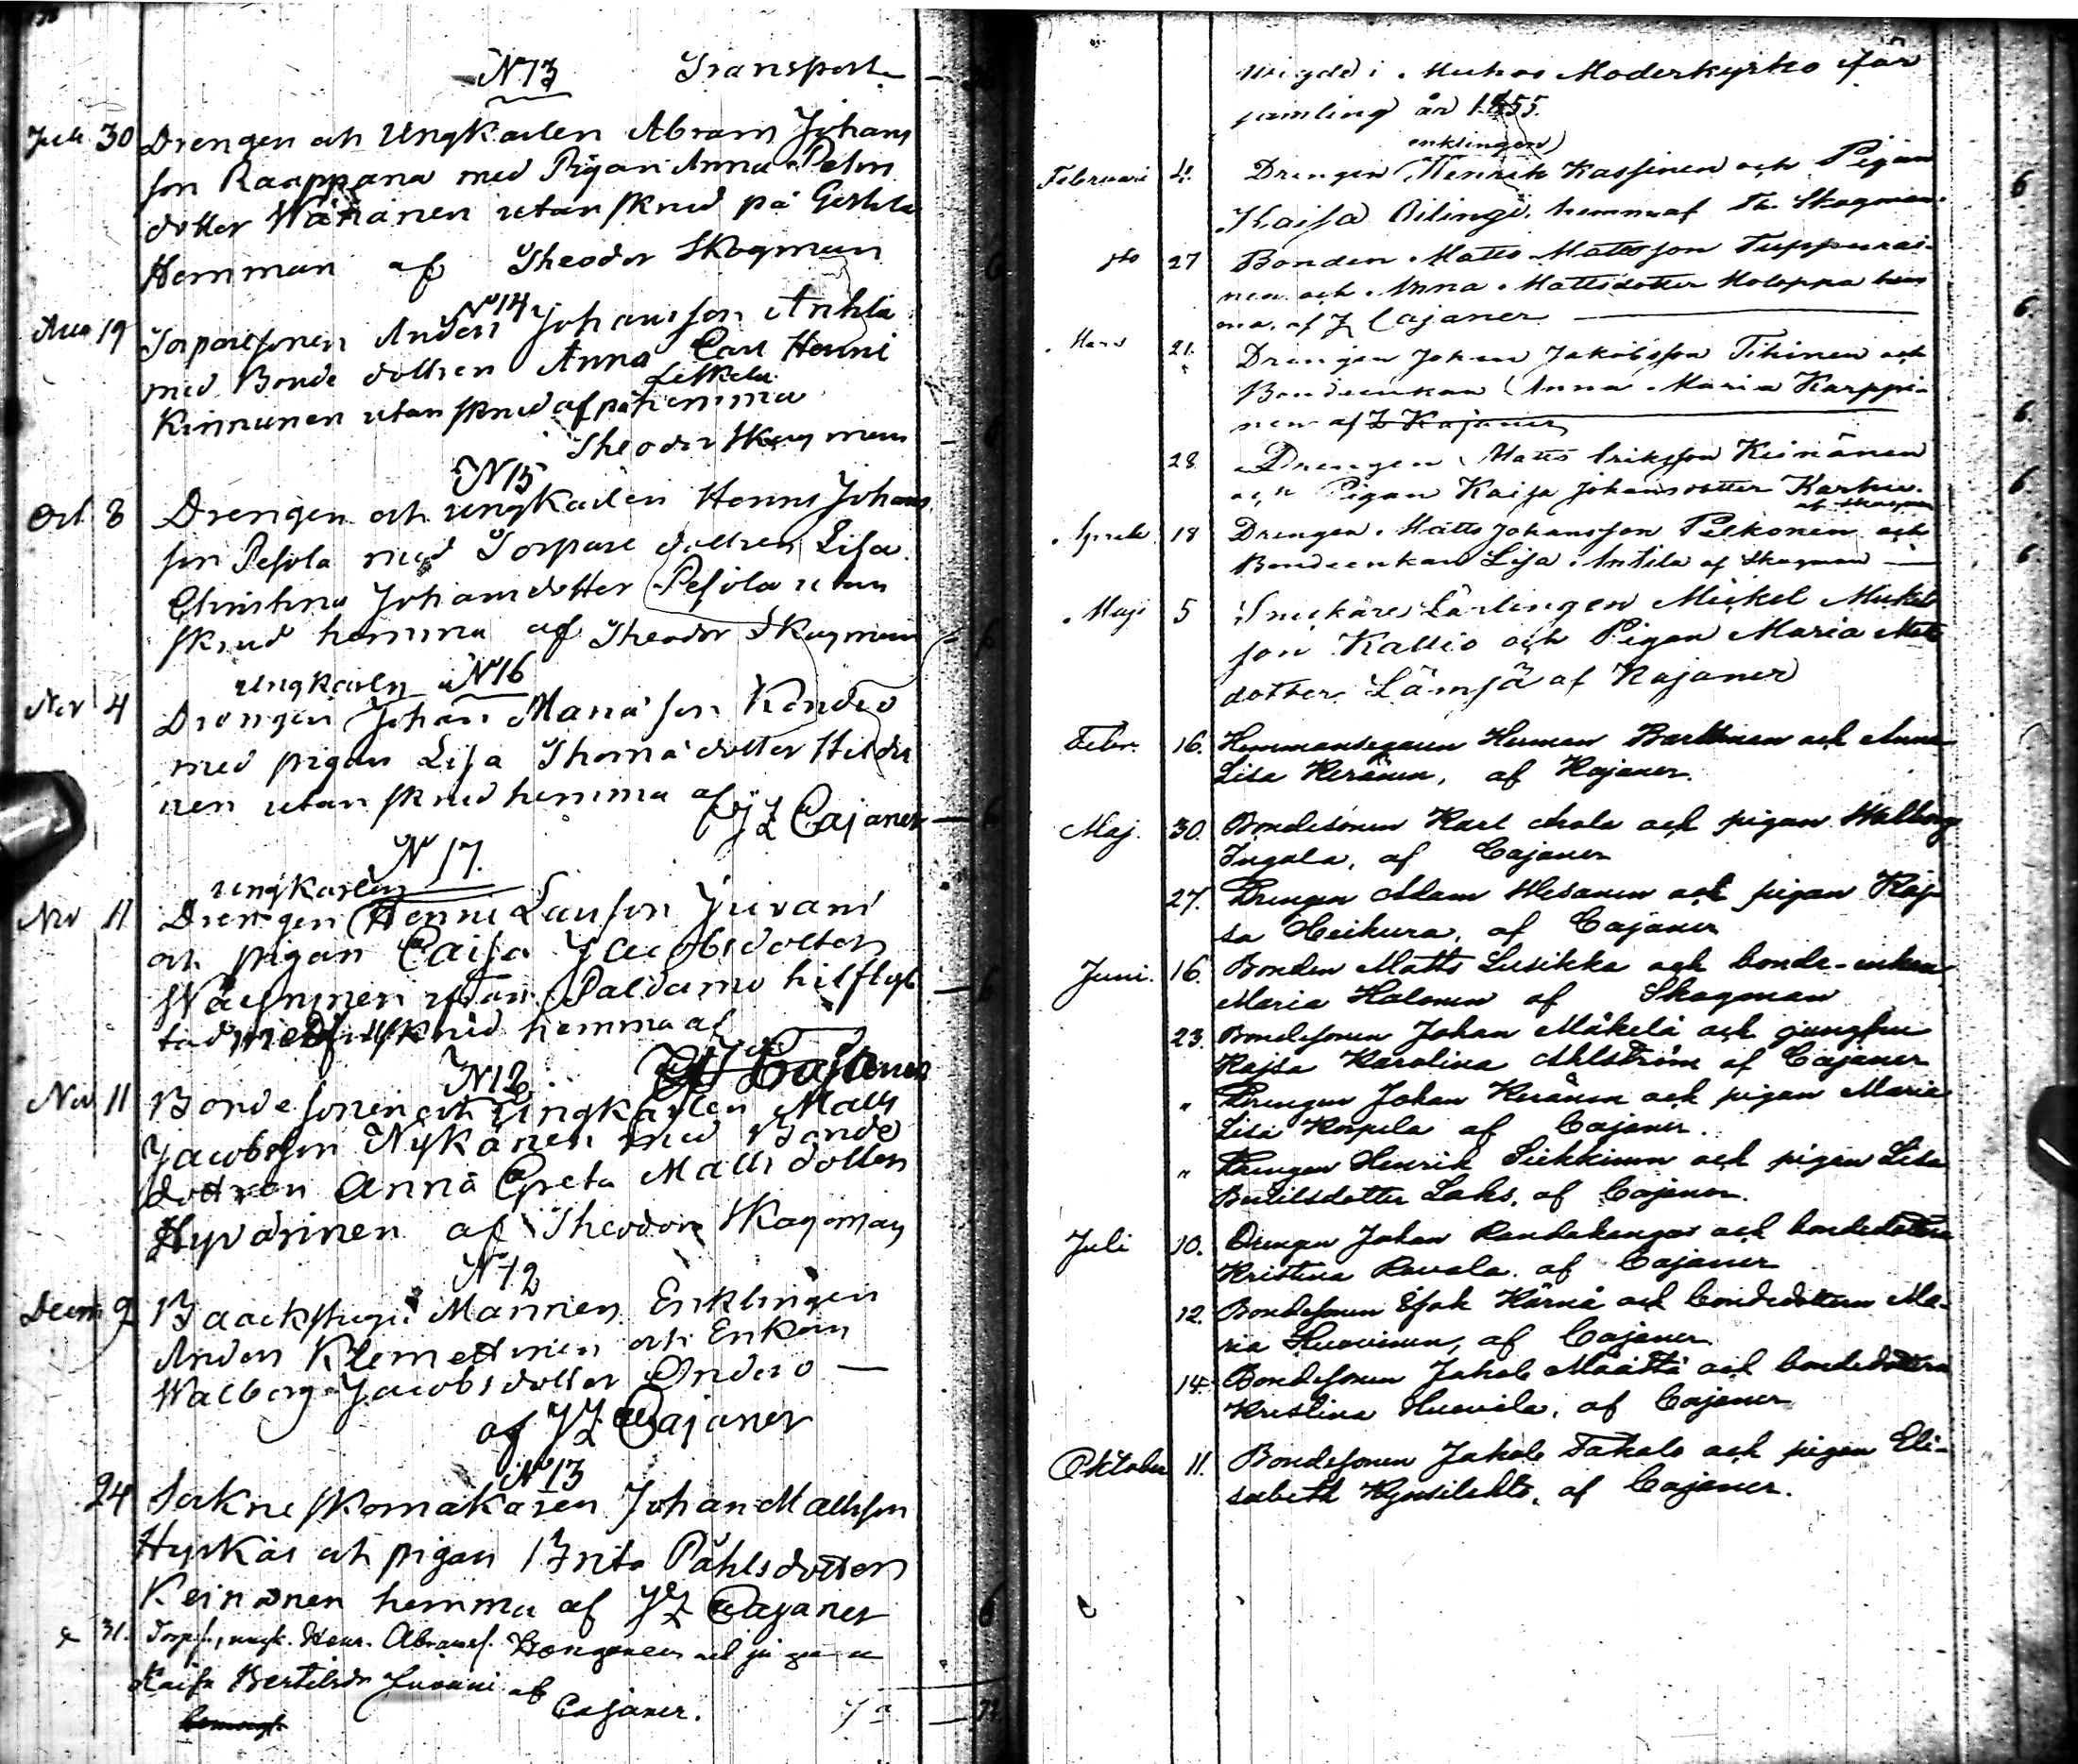 N 13 Transport
Juli 30 Drengen och Ungkarlen Abram Johans
son Raappana med Pigan Anna Pehrs
dotter Wänänen utan skrud på
Hemman af Theodor Skogman 6
N 14
Aug 19 Torparesonen Anders Johansson Anttila
med Bonde dottren Anna Carl Henni
Kinnunen utan skrud af på hemma
Theodor Skogman 6
N 15
Oct 8 Drengen och ungkarlen Henns Johans
son Pesola med Torpare dottren Lisa
Christina Johansdotter Pesola utan
skrud hemma af Theodor Skogman 6
ungkarlen N 16
Nov 4 Drengen Johan Manásson Kondio
med pigan Lisa Thomádotter Hildu
nen utan skrud hemma af
JZ Cajaner 6
N 17.
ungkarlen
Nov 11 Drengen Henne Larsson Juvani
och pigan Caisa Jacobsdotter
Wäyrynen från Paldamo hitflyt
tad med skrud hemma af
N 12 Cajaner
Nov 11 Bondesonen och Ungkarlen Matts
Jacobsson Nykänen med Bonde
dottren Anna Greta Matts dotter
Hyvärinen af Theodor Skogman
N 12
Decem 9 Baackstugu Mannen Enklingen
Anders Klemettinen och Enkan
Walborg Jacobsdotter Ondero
af JZ Cajaner
N 13
24 Sockne skomakaren Johan Mattsson
Hyrkäs och pigan Brita Påhlsdotter
Keinänen hemma af JZ Cajaner 6
31. Torps., ungk. Henr. Abramss. Kongonen och pigan
Kaisa Bertilsdr Juvani af
Cajaner.
wigde i Muhos Moderkyrko för
samling år 1855.
enklingen
Februari 4. Drengen Henrik Kassinen och Pigan 6
Kaisa hemma af Th. Skogman.
dto 27 Bonden Matts Mattsson Tuppurai-
nen och Anna Mattsdotter Holappa hem 6.
ma, af Z Cajaner
Mars 21. Drengen Johan Jakobsson Tihinen och
Bondeenkan Anna Maria Karppi- 6.
nen af Z Kajaner
28 Drengen Matts Eriksson Keinänen
och Pigan Kaisa Johansdotter Karhu. 6.
af Skogman
Aprill 18 Drengen Matts Johansson Pelkonen och
Bondeenkan Lisa Antila af Skogman 6.
Maji 5 Snickare Lärlingen Mickel Mickels
son Kallio och Pigan Maria Mats
dotter Lämsä af Kajaner
Febr. 16. Hemmansegaren Herman Barkman och Anna
Lisa Keränen, af Kajaner.
Maj. 30. Bondesonen Karl Ahola och pigan Walborg
Ingala, af Cajaner
27. Drengen Adam Wesanen och pigan Kaj-
sa Heikura, af Cajaner
Juni. 16. Bonden Matts Lusikka och bonde-enkan
Maria Halonen af Skogman
23. Bondesonen Johan Mäkelä och jungfru
Kajsa Karolina Ahlström af Cajaner
" Drengen Johan Keränen och pigan Maria
Lisa Korpela af Cajaner.
" Drengen Henrik Siekkinen och pigan Lisa
Bertilsdotter Laks, af Cajaner.
Juli 10. Drengen Johan Randakangas och bondedottren
Kristina Ravala, af Cajaner
12. Bondesonen Esak Kärnä och bondedottren Ma-
ria Huovinen, af Cajaner
14. Bondesonen Jakob Määttä och bondedottren
Kristina Huovila, af Cajaner
Oktober 11. Bondesonen Jakob Takalo och pigan Eli-
sabeth Kynsilehto, af Cajaner.